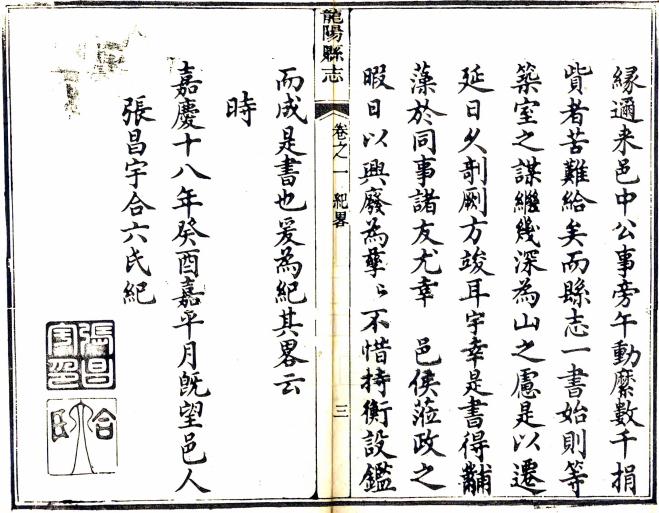 縁邇来邑中公事旁午動縻數千捐
貲者苦難給矣而縣志一書始則等
築室之謀繼幾深為山之慮是以遷
延日久剞劂方竣耳宇幸是書得黼
藻於同事諸友尤幸　邑侯蒞政之
暇日以興廢為孳〻不惜持衡設鑑
龍陽縣志
卷之一　紀畧
三
而成是書也爰為紀其畧云
時
嘉慶十八年癸酉嘉平月既望邑人
張昌宇合六氏紀
張昌宇印
合六氏